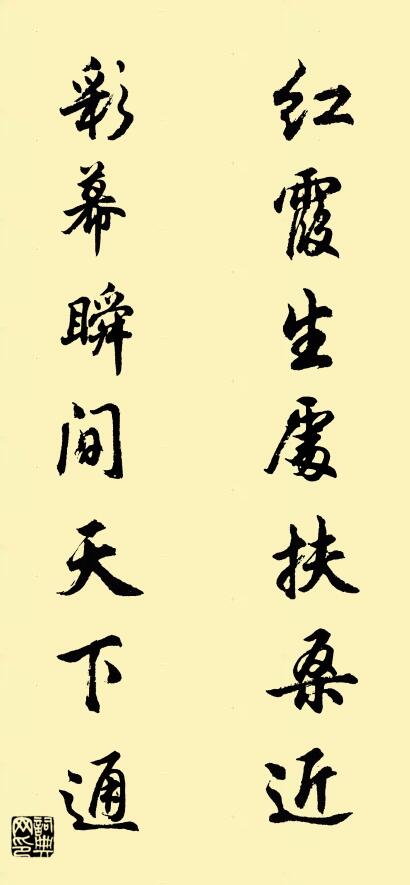 红霞生處扶桑近
彩幕瞬间天下通
詞典网印